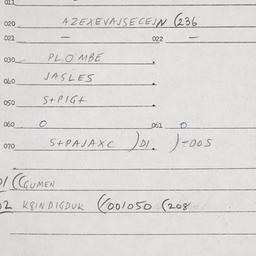 011
020 AZEXEVAJSECEJN (236
021 — 022 —
030 PLOMBE .
040 JASLES .
050 S+PIG+ .
060 O 061 O
070 S+PAJAXC )DI. )-DOS
01 ((GUMEN
02 K8INDIGDUK ((001050 (208